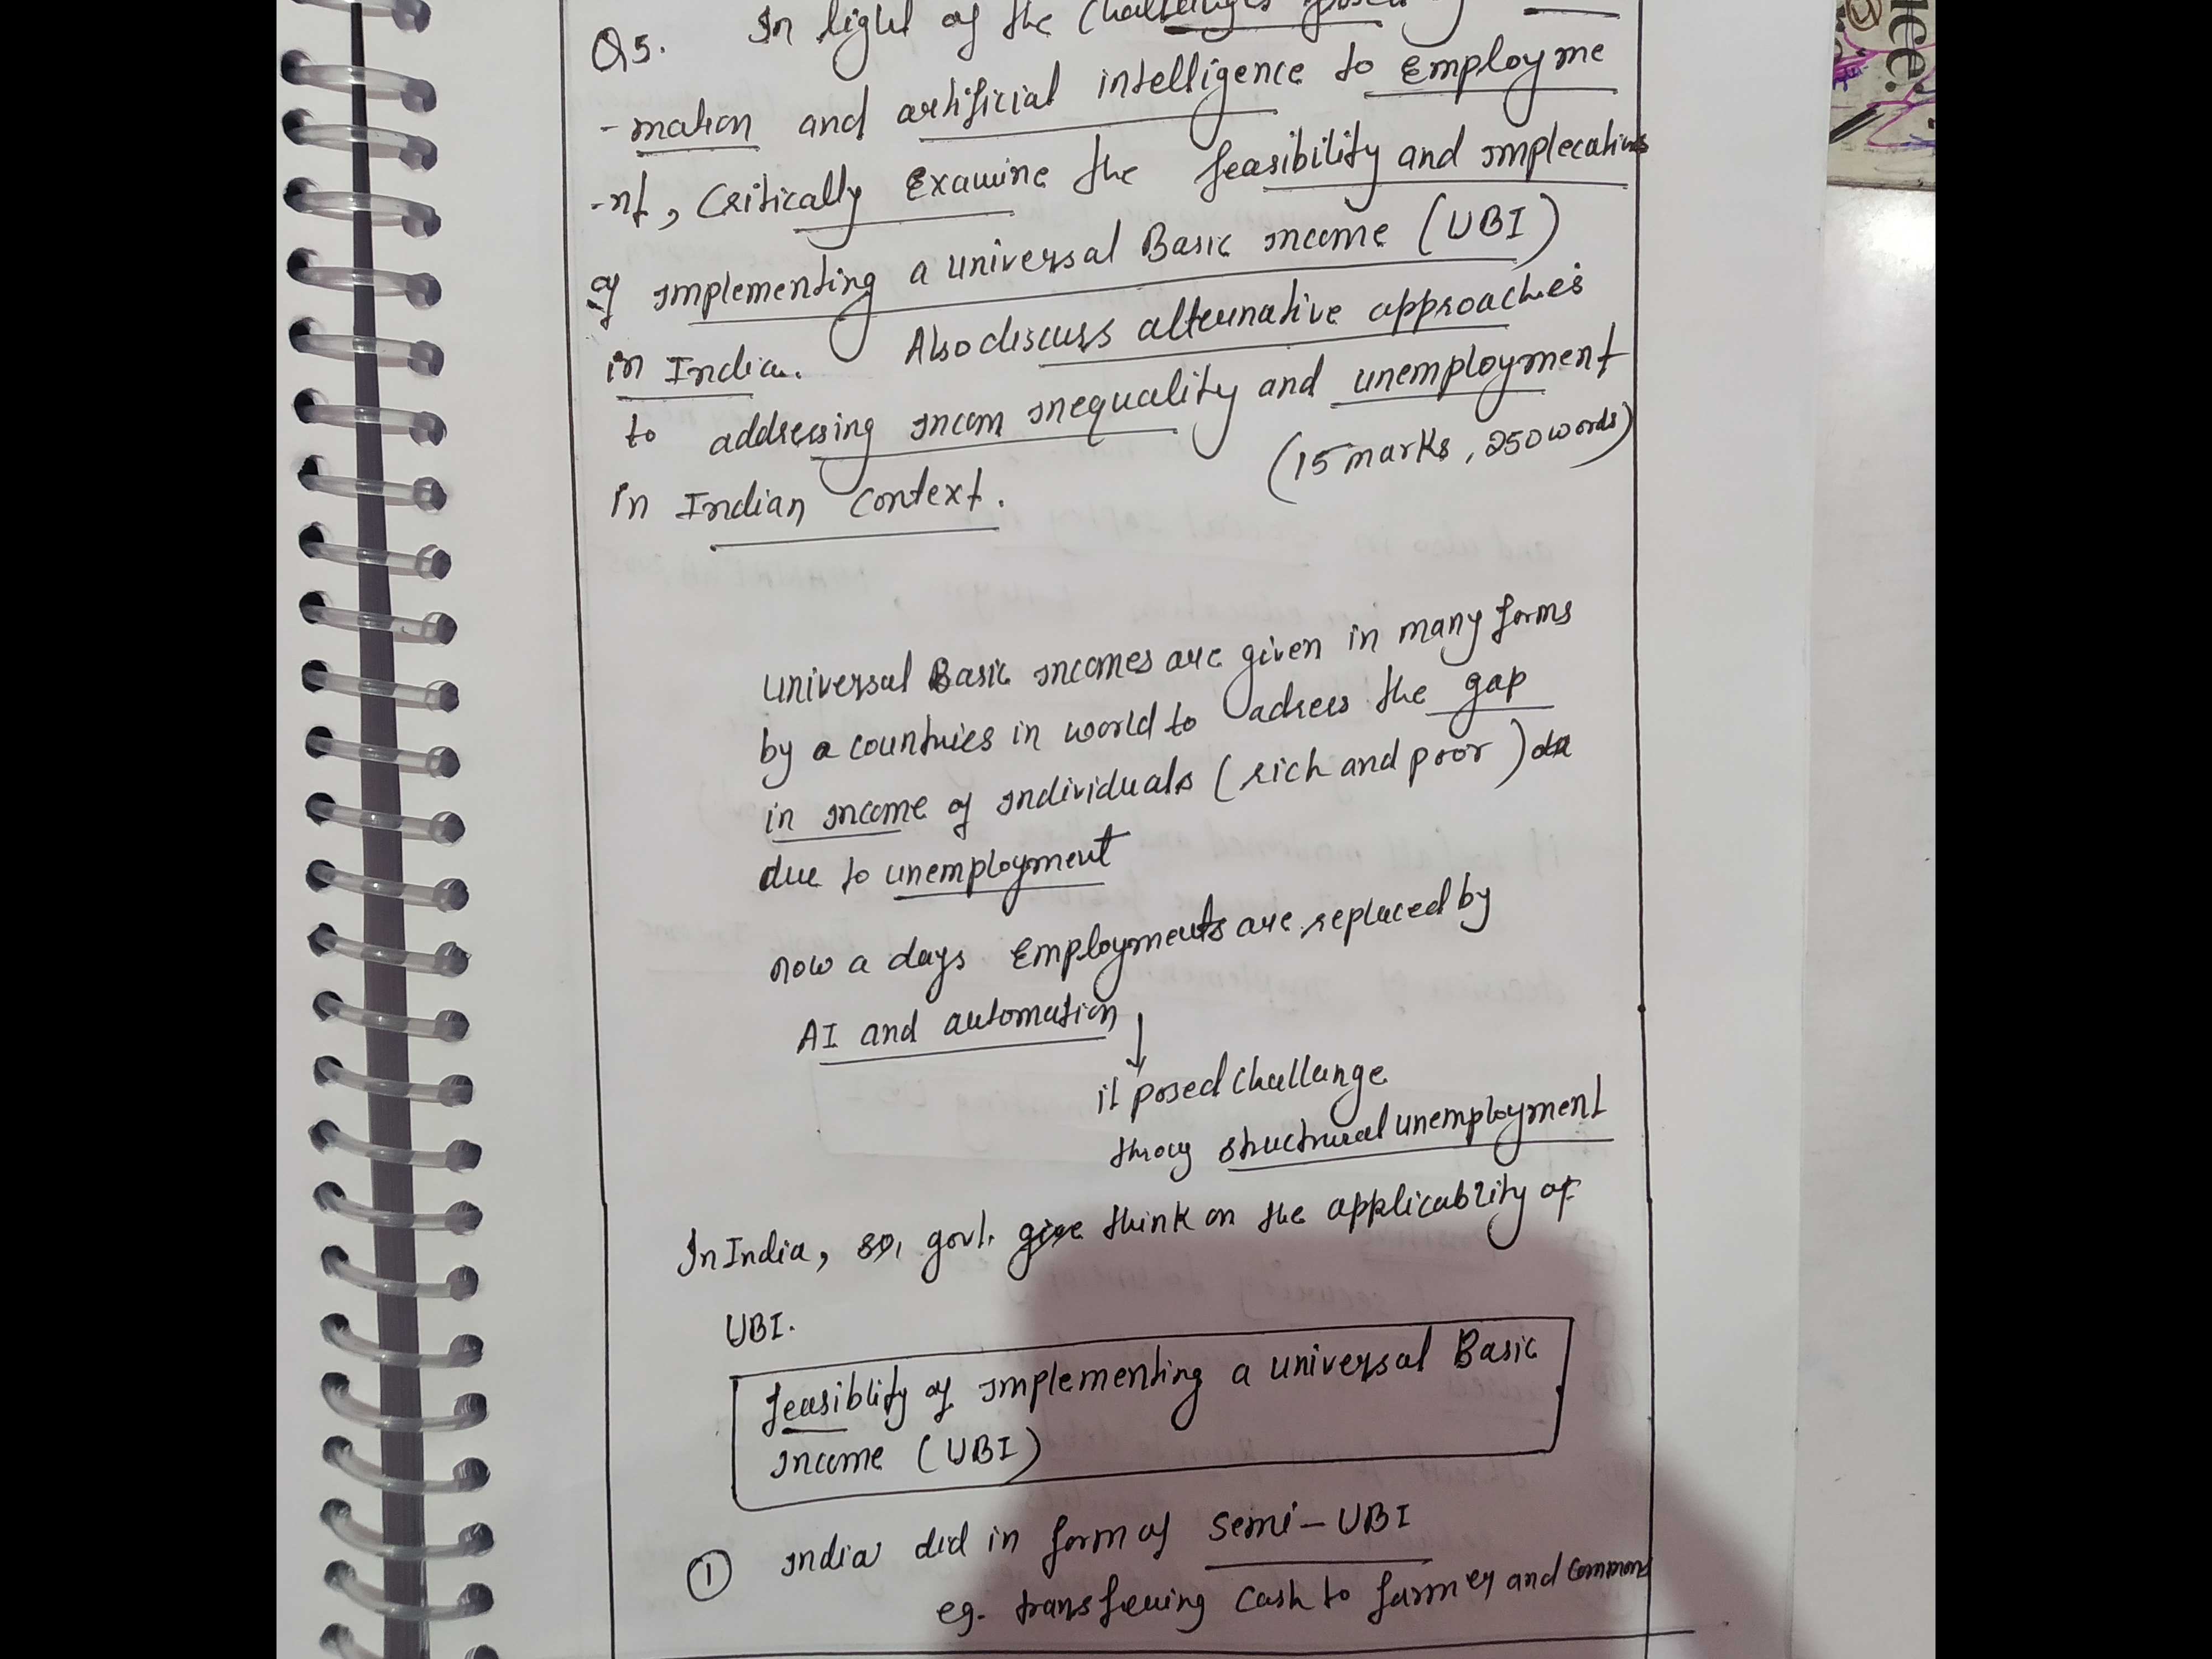 Q5. In light of the challenges posed
-mation and artificial intelligence to Employme
-nt, Critically Examine the feasibility and implecations
of implementing a universal Basic income (UBI)
in India. Also discuss alternative approaches
to addressing incom inequality and unemployment
in Indian Context. (15 marks, 250 words)
universal Basic incomes are given in many forms
by a countries in world to adress the gap
in income of individuals (rich and poor)
due to unemployment
now a days Employments are replaced by
AI and automation
↓
it posed challange
throug structural unemployment
In India, so, govt. give think on the applicablity of
UBI.
feasiblity of implementing a universal Basic
income (UBI)
① india did in form of Semi-UBI
eg. transfering cash to farmer and common
ice.